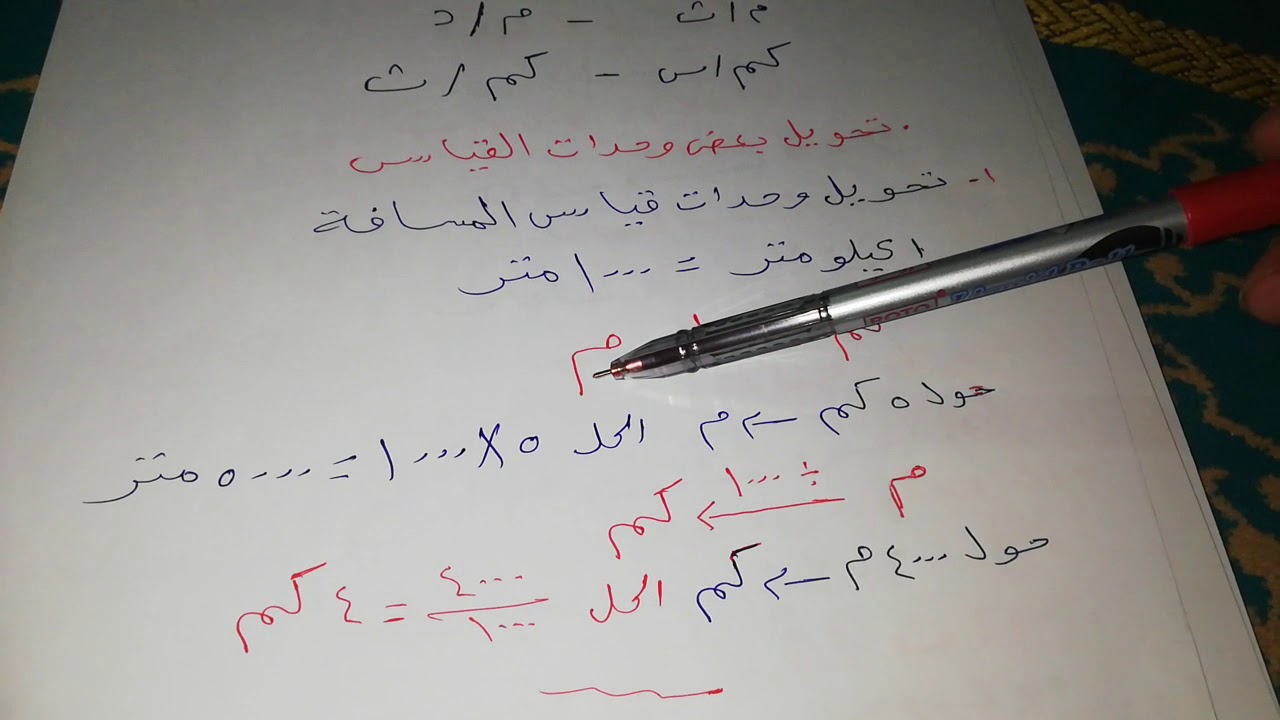 م/ث - م/د
كم/س - كم/ث
. تحويل بعض وحدات القياس
١- تحويل وحدات قياس المسافة
١ كيلومتر = ١٠٠٠ متر
كم م
حول ٥ كم ← م الحل ٥ X ١٠٠٠ = ٥٠٠٠ متر
م ÷ ١٠٠٠ ← كم
حول ٤٠٠٠ م ← كم الحل ٤٠٠٠/١٠٠٠ = ٤ كم
ROTO